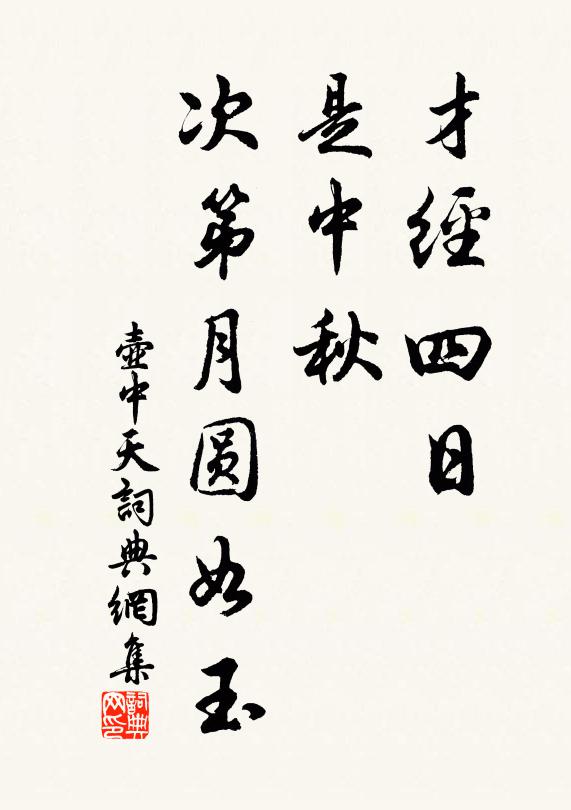 才經四日
是中秋
次第月圓如玉
壺中天詞典網集
詞典网印